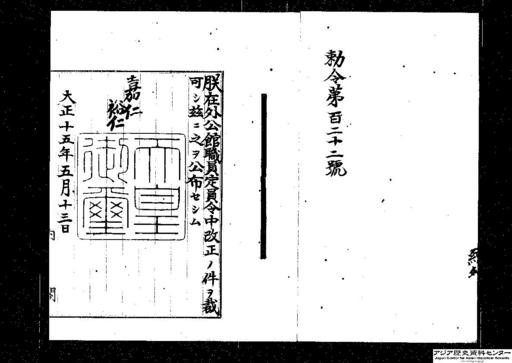 勅令第百二十二號
朕在外公館職員定員令中改正ノ件ヲ裁
可シ茲ニ之ヲ公布セシム
嘉仁
裕仁
天皇御璽
大正十五年五月十三日
内閣
アジア歴史資料センター
Japan Center for Asian Historical Records